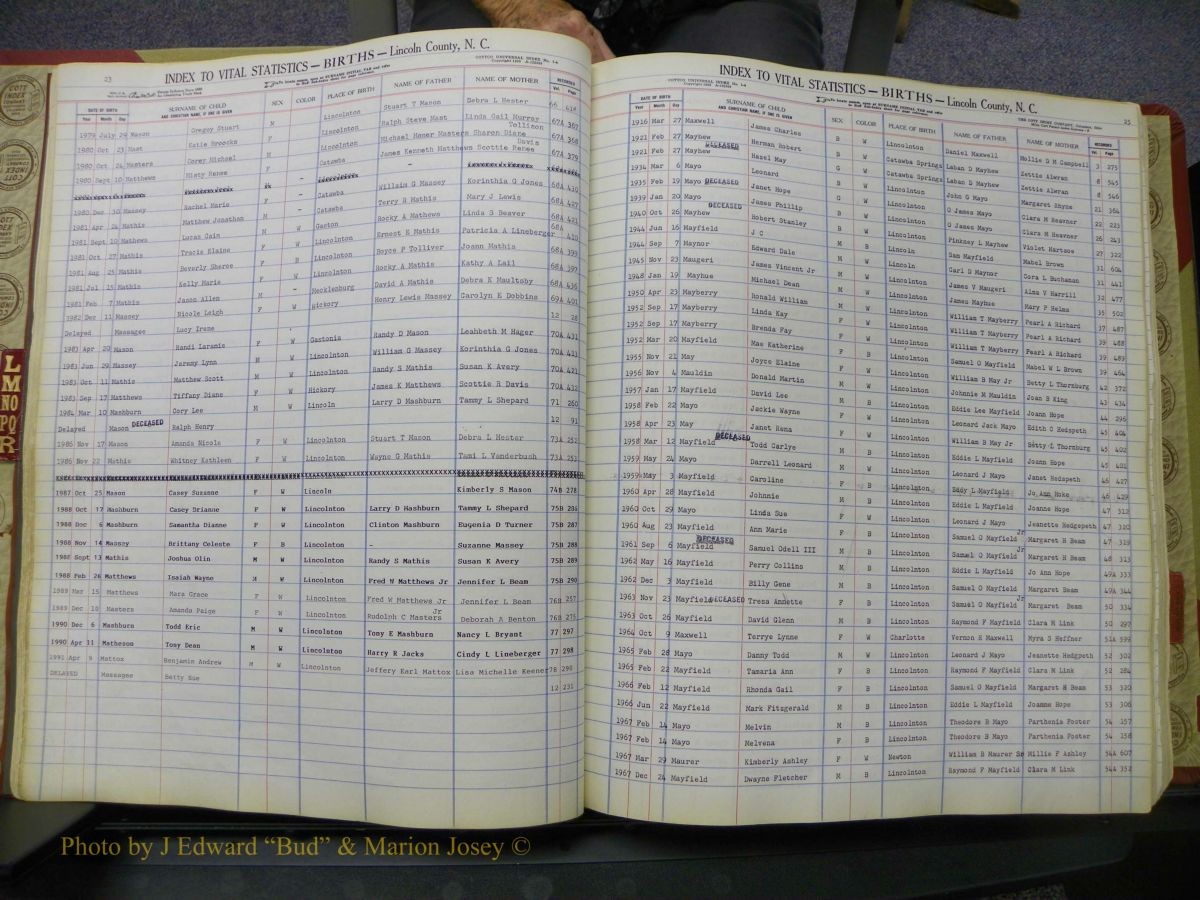 23
INDEX TO VITAL STATISTICS — BIRTHS — Lincoln County, N. C.
DATE OF BIRTH
Year Month Day
SURNAME OF CHILD
AND CHRISTIAN NAME, IF ONE IS GIVEN
SEX
COLOR
PLACE OF BIRTH
NAME OF FATHER
NAME OF MOTHER
RECORDED
Vol. Page
1979 July 29 Mason Gregory Stuart M Lincolnton Stuart T Mason Debra L Hester 66 414
1980 Oct 23 Mast Katie Broocks Lincolnton Ralph Steve Mast Linda Gail Murray 67A 367
1980 Oct 24 Masters Corey Michael Lincolnton Michael Homer Masters Sharon Diane Tollison 67A 368
1980 Sept 10 Matthews Misty Renee F Catawba James Kenneth Matthews Scottie Renee Davis 67A 379
1980 Dec 30 Massey Rachel Marie Catawba William G Massey Korinthia G Jones 68A 410
1981 Apr 24 Mathis Matthew Jonathan Catawba Terry B Mathis Mary J Lewis 68A 427
1981 Sept 19 Mathews Lucas Cain M W Gaston Rocky A Mathews Linda S Beaver 68A 421
1981 Oct 27 Mathis Tracie Elaine F W Lincolnton Ernest E Mathis Patricia A Lineberger 68A 420
1981 Aug 25 Mathis Beverly Sheree F B Lincolnton Boyce P Tolliver Joann Mathis 68A 399
1981 Jul 15 Mathis Kelly Marie F W Lincolnton Rocky A Mathis Kathy A Lail 68A 397
1981 Feb 7 Mathis Jason Allen M - Mecklenburg David A Mathis Debra K Maultsby 68A 436
1982 Dec 11 Massey Nicole Leigh F W Hickory Henry Lewis Massey Carolyn E Dobbins 69A 401
Delayed Massagee Lucy Irene 12 28
1983 Apr 20 Mason Randi Laramie F W Gastonia Randy D Mason Leahbeth M Hager 70A 431
1983 Jun 29 Massey Jeremy Lynn M W Lincolnton William G Massey Korinthia G Jones 70A 433
1983 Oct 11 Mathis Matthew Scott M W Lincolnton Randy S Mathis Susan K Avery 70A 421
1983 Sep 17 Matthews Tiffany Diane F W Hickory James K Matthews Scottie R Davis 70A 432
1984 Mar 10 Mashburn Cory Lee M W Lincoln Larry D Mashburn Tammy L Shepard 71 260
Delayed Mason DECEASED Ralph Henry 12 91
1986 Nov 17 Mason Amanda Nicole F W Lincolnton Stuart T Mason Debra L Hester 73A 252
1986 Nov 22 Mathis Whitney Kathleen F W Lincolnton Wayne G Mathis Tami L Vanderbush 73A 253
1987 Oct 25 Mason Casey Suzanne F W Lincoln Kimberly S Mason 74B 278
1988 Oct 17 Mashburn Casey Drianne F W Lincolnton Larry D Mashburn Tammy L Shepard 75B 286
1988 Dec 6 Mashburn Samantha Dianne F W Lincolnton Clinton Mashburn Eugenia D Turner 75B 287
1988 Nov 14 Massey Brittany Celeste F B Lincolnton - Suzanne Massey 75B 288
1988 Sept 13 Mathis Joshua Olin M W Lincolnton Randy S Mathis Susan K Avery 75B 289
1988 Feb 26 Matthews Isaiah Wayne M W Lincolnton Fred W Matthews Jr Jennifer L Beam 75B 290
1989 Mar 15 Matthews Mara Grace F W Lincolnton Fred W Matthews Jr Jennifer L Beam 76B 257
1989 Dec 10 Masters Amanda Paige F W Lincolnton Rudolph C Masters Jr Deborah A Benton 76B 276
1990 Dec 6 Mashburn Todd Eric M W Lincolnton Tony E Mashburn Nancy L Bryant 77 297
1990 Apr 11 Matheson Tony Dean M W Lincolnton Harry R Jacks Cindy L Lineberger 77 298
1991 Apr 9 Mattox Benjamin Andrew M W Lincolnton Jeffery Earl Mattox Lisa Michelle Keener 78 298
DELAYED Massagee Betty Sue 12 231
INDEX TO VITAL STATISTICS — BIRTHS — Lincoln County, N. C.
25
DATE OF BIRTH
Year Month Day
SURNAME OF CHILD
AND CHRISTIAN NAME, IF ONE IS GIVEN
SEX
COLOR
PLACE OF BIRTH
NAME OF FATHER
NAME OF MOTHER
RECORDED
Vol. Page
1916 Mar 27 Maxwell James Charles B W Lincolnton Daniel Maxwell Mollie G M Campbell 3 275
1921 Feb 27 Mayhew DECEASED Herman Robert B W Catawba Springs Laban D Mayhew Zettie Alwran 8 545
1921 Feb 27 Mayhew Hazel May G W Catawba Springs Laban D Mayhew Zettie Alwran 8 546
1934 Mar 6 Mayo Leonard B W Lincolnton John G Mayo Margaret Rhyne 21 364
1935 Feb 19 Mayo DECEASED Janet Hope G W Lincolnton O James Mayo Clara M Heavner 22 223
1939 Jan 20 Mayo DECEASED James Phillip B W Lincolnton O James Mayo Clara M Heavner 26 243
1940 Oct 26 Mayhew Robert Stanley B W Lincolnton Pinkney L Mayhew Violet Hartsoe 27 322
1944 Jun 16 Mayfield J C M B Lincoln Sam Mayfield Mabel Brown 31 604
1944 Sep 7 Maynor Edward Dale M W Lincoln Carl D Maynor Cora L Buchanan 31 441
1945 Nov 23 Maugeri James Vincent Jr M W Lincolnton James V Maugeri Alma V Harrill 32 477
1948 Jan 19 Mayhue Michael Dean M W Lincolnton James Mayhue Mary P Helms 35 502
1950 Apr 23 Mayberry Ronald William M W Lincolnton William T Mayberry Pearl A Richard 37 487
1952 Sep 17 Mayberry Linda Kay F W Lincolnton William T Mayberry Pearl A Richard 39 488
1952 Sep 17 Mayberry Brenda Fay F W Lincolnton William T Mayberry Pearl A Richard 39 489
1952 Mar 20 Mayfield Mae Katherine F B Lincolnton Samuel O Mayfield Mabel W L Brown 39 464
1955 Nov 21 May Joyce Elaine F W Lincolnton William B May Jr Betty L Thornburg 42 372
1956 Nov 4 Mauldin Donald Martin M W Lincolnton Johnnie M Mauldin Joan B King 43 434
1957 Jan 17 Mayfield David Lee M B Lincolnton Eddie Lee Mayfield Joann Hope 44 295
1958 Feb 22 Mayo Jackie Wayne M W Lincolnton Leonard Jack Mayo Edith C Hedspeth 45 404
1958 Apr 23 May Janet Rena F W Lincolnton William B May Jr Betty L Thornburg 45 402
1958 Mar 12 Mayfield DECEASED Todd Carlye M B Lincolnton Eddie L Mayfield Joann Hope 45 401
1959 May 24 Mayo Darrell Leonard M W Lincolnton Leonard J Mayo Janet Hedspeth 46 427
1959 May 3 Mayfield Caroline F B Lincolnton Eddy L Mayfield Jo Ann Hoke 46 429
1960 Apr 28 Mayfield Johnnie M B Lincolnton Eddie L Mayfield Joann Hope 47 312
1960 Oct 29 Mayo Linda Sue F W Lincolnton Leonard J Mayo Jeanette Hedgepeth 47 320
1960 Aug 23 Mayfield Ann Marie F B Lincolnton Samuel O Mayfield Jr Margaret H Beam 47 319
1961 Sep 6 Mayfield DECEASED Samuel Odell III M B Lincolnton Samuel O Mayfield Jr Margaret H Beam 48 313
1962 May 16 Mayfield Perry Collins M B Lincolnton Eddie L Mayfield Jo Ann Hope 49A 333
1962 Dec 3 Mayfield Billy Gene M B Lincolnton Samuel O Mayfield Margaret Beam 49A 344
1963 Nov 23 Mayfield DECEASED Tresa Annette F B Lincolnton Samuel O Mayfield Jr Margaret Beam 50 334
1963 Oct 26 Mayfield David Glenn M B Lincolnton Raymond F Mayfield Clara M Link 50 297
1964 Oct 9 Maxwell Terrye Lynne F W Charlotte Vernon S Maxwell Myra S Heffner 51A 599
1965 Feb 28 Mayo Danny Todd M W Lincolnton Leonard J Mayo Jeanette Hedgpeth 52 302
1965 Feb 22 Mayfield Tamaria Ann F B Lincolnton Raymond F Mayfield Clara M Link 52 284
1966 Feb 12 Mayfield Rhonda Gail F B Lincolnton Samuel O Mayfield Margaret H Beam 53 320
1966 Jun 22 Mayfield Mark Fitzgerald M B Lincolnton Eddie L Mayfield Joanne Hope 53 306
1967 Feb 14 Mayo Melvin M B Lincolnton Theodore B Mayo Parthenia Foster 54 157
1967 Feb 14 Mayo Melvena F B Lincolnton Theodore B Mayo Parthenia Foster 54 158
1967 Mar 29 Maurer Kimberly Ashley F W Newton William B Maurer Sr Millie F Ashley 54A 607
1967 Dec 24 Mayfield Dwayne Fletcher M B Lincolnton Raymond F Mayfield Clara M Link 54A 352
L
M
NO
PQ
R
Photo by J Edward “Bud” & Marion Josey ©